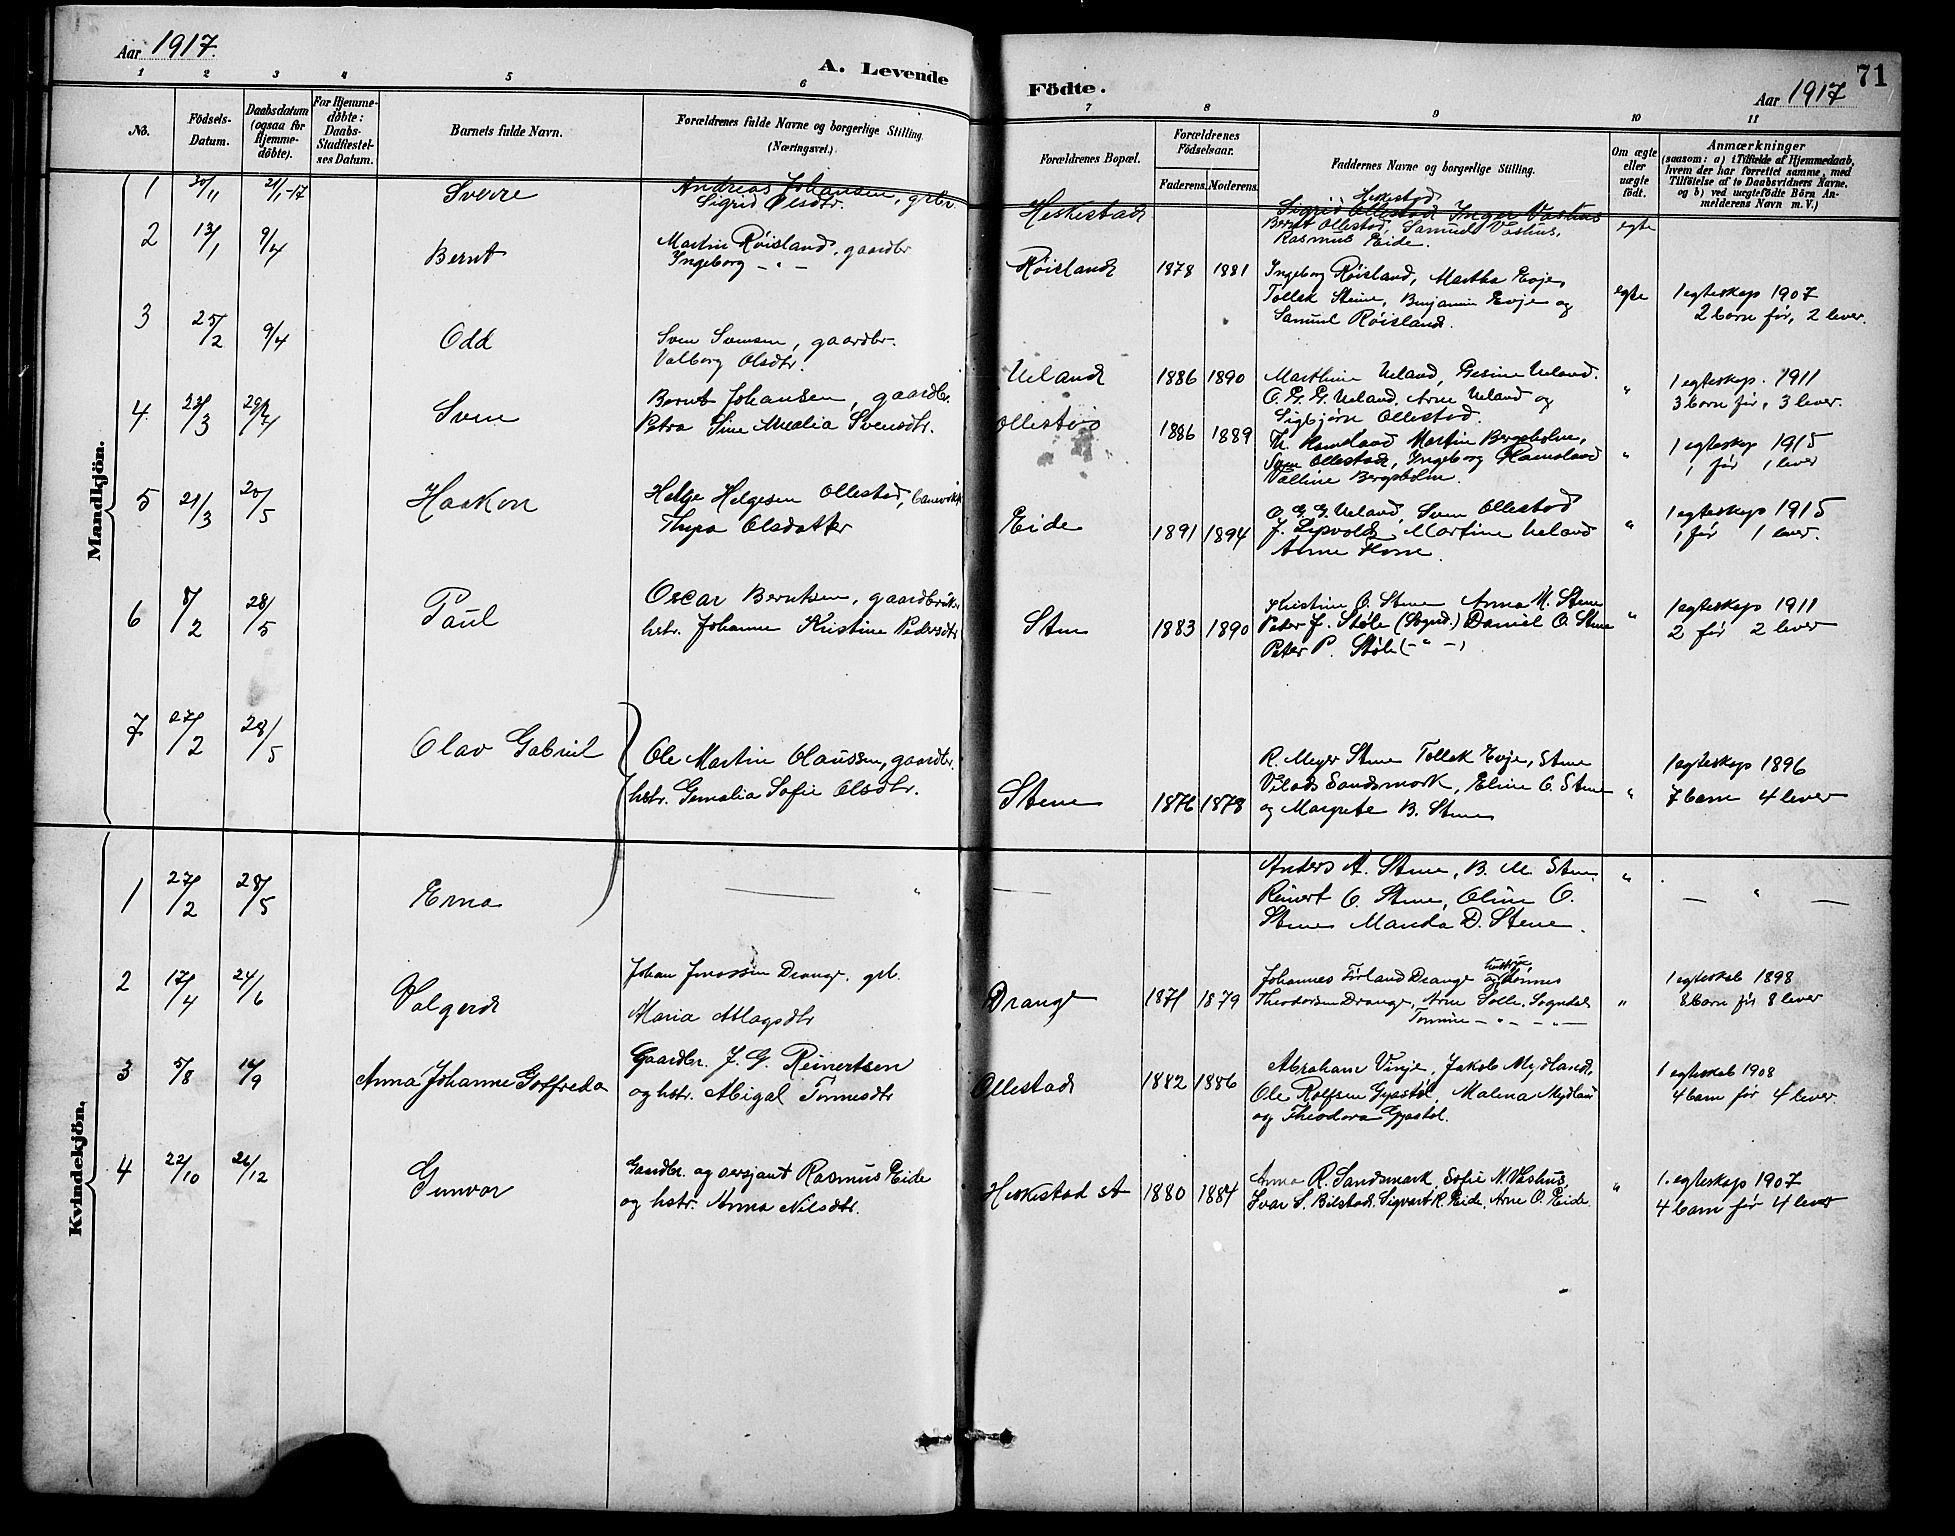 Aar 1917.
A. Levende
Födte.
Aar 1917
71
1 2 3 4 5 6 7 8 9 10 11
No.
Födsels-
Datum.
Daabsdatum
(ogsaa for
Hjemme-
døbte).
For Hjemme-
døbte:
Daabs-
Stadfæstel-
ses Datum.
Barnets fulde Navn.
Forældrenes fulde Navne og borgerlige Stilling.
(Næringsvei.)
Forældrenes Bopæl.
Forældrenes
Födselsaar.
Faderens. Moderens.
Faddernes Navne og borgerlige Stilling.
Om ægte
eller
uægte
født.
Anmærkninger
(saasom: a) i Tilfælde af Hjemmedaab,
hvem der har forrettet samme, med
Tilföielse af to Daabsvidners Navne.
og b) ved uægtefödte Börn An-
melderens Navn m. V.)
Mandkjön.
1 30/11 21/1-17 Sverre
Andreas Johansen, grbr.
Sigrid Olsdtr.
Heskestad
Heskestad
Sigrid Ollestad Inger Vashus
Bernt Ollestad, Samuel Vashus,
Rasmus Eide.
egte
2 13/1 9/4 Bernt
Martin Röisland, gaardbr
Ingeborg - " -
Röisland 1878 1881
Ingeborg Röisland, Martha Evje,
Tollak Stene, Benjamin Evje og
Samuel Röisland.
egte
1 egteskap 1907
2 barn før, 2 lever.
3 25/2 9/4 Odd
Sven Svensen, gaardbr.
Valborg Olsdtr.
Ueland 1886 1890
Marthine Ueland, Gesine Ueland.
O. G. G. Ueland, Arne Ueland og
Sigbjørn Ollestad.
"
1 egteskap. 1911
3 barn før, 3 lever.
4. 23/3 29/4 Sven
Bernt Johansen, gaardbr.
Petra Sine Amalia Svensdtr.
Ollestad 1886 1889
Th. Hamsland Martin Bergsholm,
Sven Ollestad, Ingeborg Hamsland
Valline Bergsholm.
"
1 egteskap 1915
1 før 1 lever
5 21/3 20/5 Haakon
Helge Helgesen Ollestad,
Thyra Olsdatter
Eide 1891 1894
O. G. G. Ueland, Sven Ollestad
J. Martine Ueland
Anne
"
1 egteskap 1915
1 før 1 lever.
6 8/2 28/5 Paul
Oscar Berntsen, gaardbruker
hstr. Johanne Kristine Pedersdtr
Stene 1883 1890
Kristine O. Stene Anna M. Stene
Peter J. Støle (Sognd.) Daniel O. Stene
Peter P. Støle (- " -)
"
1 egteskap 1911
2 før 2 lever
7 27/2 28/5 Olav Gabriel
Ole Martin Olaussen, gaardbr.
hstr. Gemalia Sofie Olsdtr.
Stene 1876 1878
R. Meyer Stene Tollak Evje, Stene
Vilads Sandsmork, Eline O. Stene
og Margrete B. Stene
"
1 egteskap 1896
7 barn 4 lever
Kvindekjön.
1 27/2 28/5 Erna
— "
—
Anders A. Stene, B. M. Stene
Reinert O. Stene, Oline O.
Stene Manda D. Stene.
"
— " —
2 17/4 24/6 Valgerd
Johan Jonassen Drange, grb.
Maria Aslagsdtr
Drange 1871 1879
Johannes Førland Drange og hustru, Tønnes
Theodorsen Drange, Arne Solle, Sogndal
Tomine - " - - " -
"
1 egteskab 1898
8 barn før 8 lever
3 5/8 16/9 Anna Johanne Goffreda
Gaardbr. J. G. Reinertsen
og hstr. Abigal Tønnesdtr
Ollestad 1882 1886
Abraham Vinje, Jakob Mydland,
Ole Rolfsen Gyastøl, Malena Mydland
og Theodora Gyastøl.
1 egteskab 1908
4 barn før 4 lever.
4 22/10 26/12 Gunvor
Gaardbr. og sersjant Rasmus Eide
og hstr. Anna Nilsdtr.
Heskestad st 1880 1884
Anna R. Sandsmark, Sofie N. Vashus,
Ivar S. Bilstad, Sigvart R. Eide, Arne O. Eide.
"
1. egteskap 1907
4 barn før 4 lever